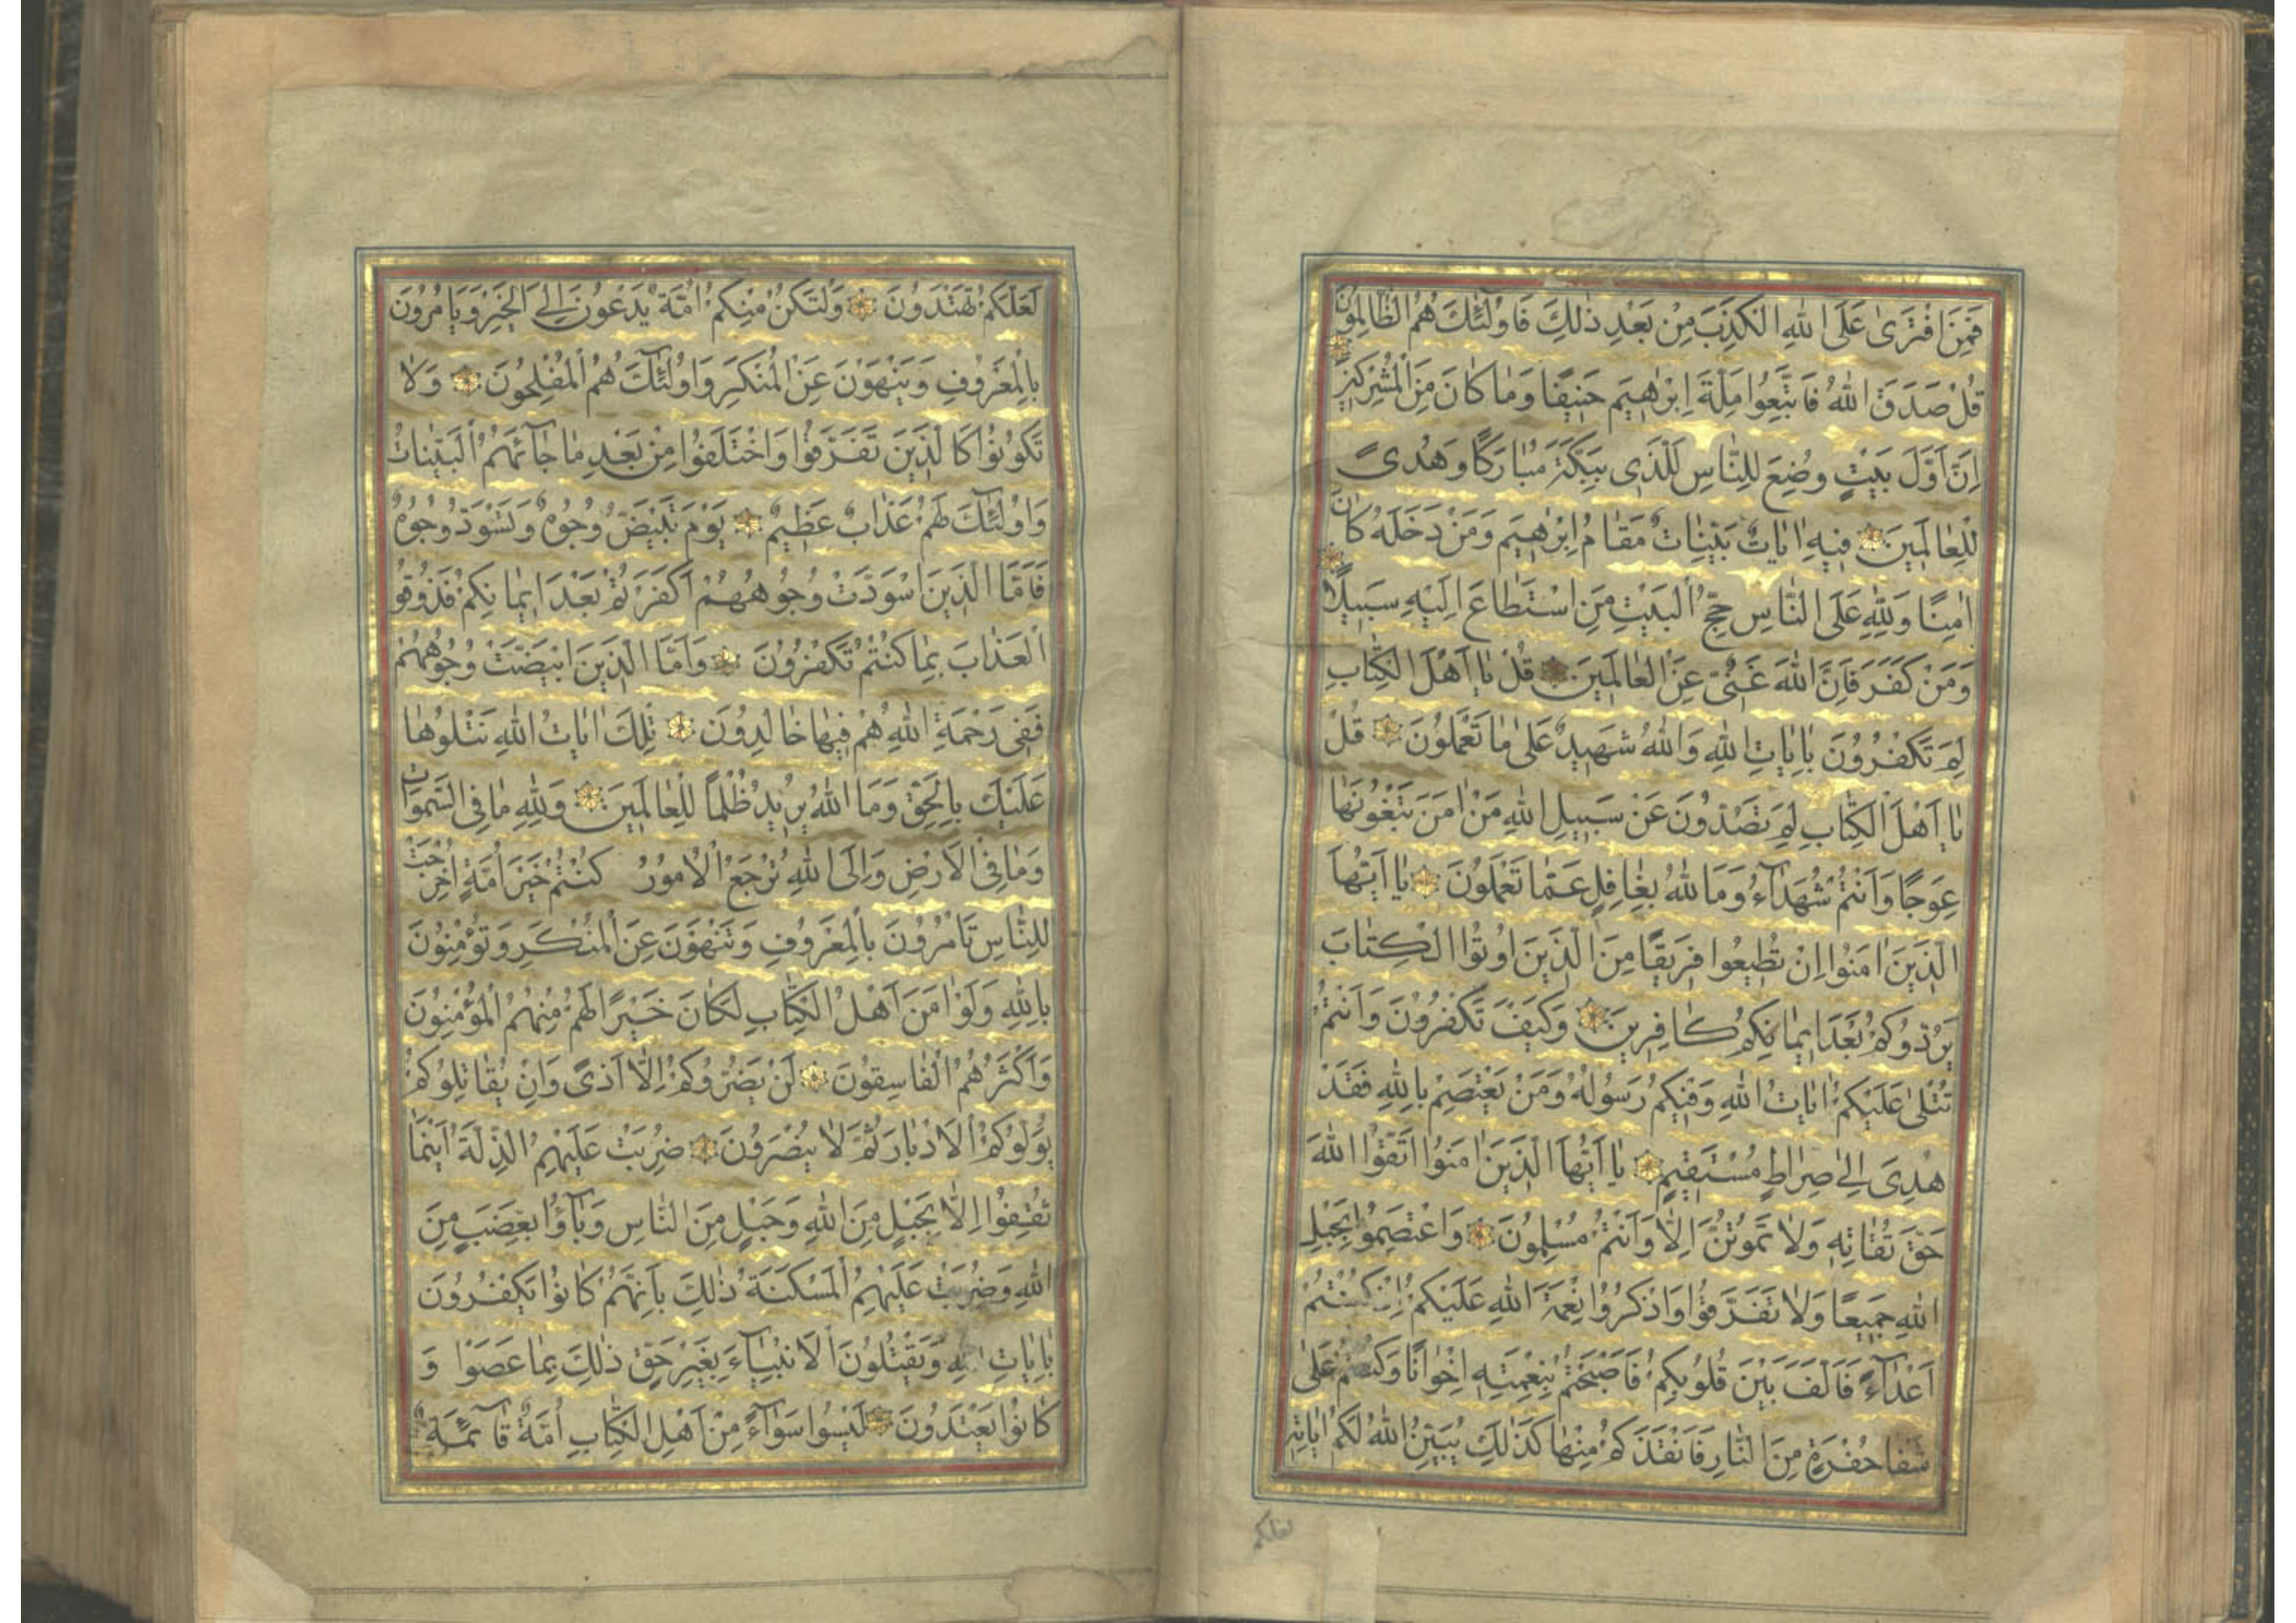 فَمَنِ افْتَرٰى عَلَى اللّٰهِ الْكَذِبَ مِنْ بَعْدِ ذٰلِكَ فَاُولٰٓئِكَ هُمُ الظَّالِمُونَ
قُلْ صَدَقَ اللّٰهُ فَاتَّبِعُوا مِلَّةَ اِبْرٰهِيمَ حَنِيفًا وَمَا كَانَ مِنَ الْمُشْرِكِينَ
اِنَّ اَوَّلَ بَيْتٍ وُضِعَ لِلنَّاسِ لَلَّذِى بِبَكَّةَ مُبَارَكًا وَهُدًى
لِلْعَالَمِينَ فِيهِ اٰيَاتٌ بَيِّنَاتٌ مَقَامُ اِبْرٰهِيمَ وَمَنْ دَخَلَهُ كَانَ
اٰمِنًا وَلِلّٰهِ عَلَى النَّاسِ حِجُّ الْبَيْتِ مَنِ اسْتَطَاعَ اِلَيْهِ سَبِيلًا
وَمَنْ كَفَرَ فَاِنَّ اللّٰهَ غَنِىٌّ عَنِ الْعَالَمِينَ قُلْ يَا اَهْلَ الْكِتَابِ
لِمَ تَكْفُرُونَ بِاٰيَاتِ اللّٰهِ وَاللّٰهُ شَهِيدٌ عَلٰى مَا تَعْمَلُونَ قُلْ
يَا اَهْلَ الْكِتَابِ لِمَ تَصُدُّونَ عَنْ سَبِيلِ اللّٰهِ مَنْ اٰمَنَ تَبْغُونَهَا
عِوَجًا وَاَنْتُمْ شُهَدَآءُ وَمَا اللّٰهُ بِغَافِلٍ عَمَّا تَعْمَلُونَ يَا اَيُّهَا
الَّذِينَ اٰمَنُوا اِنْ تُطِيعُوا فَرِيقًا مِنَ الَّذِينَ اُوتُوا الْكِتَابَ
يَرُدُّوكُمْ بَعْدَ اِيمَانِكُمْ كَافِرِينَ وَكَيْفَ تَكْفُرُونَ وَاَنْتُمْ
تُتْلٰى عَلَيْكُمْ اٰيَاتُ اللّٰهِ وَفِيكُمْ رَسُولُهُ وَمَنْ يَعْتَصِمْ بِاللّٰهِ فَقَدْ
هُدِىَ اِلٰى صِرَاطٍ مُسْتَقِيمٍ يَا اَيُّهَا الَّذِينَ اٰمَنُوا اتَّقُوا اللّٰهَ
حَقَّ تُقَاتِهِ وَلَا تَمُوتُنَّ اِلَّا وَاَنْتُمْ مُسْلِمُونَ وَاعْتَصِمُوا بِحَبْلِ
اللّٰهِ جَمِيعًا وَلَا تَفَرَّقُوا وَاذْكُرُوا نِعْمَةَ اللّٰهِ عَلَيْكُمْ اِذْ كُنْتُمْ
اَعْدَآءً فَاَلَّفَ بَيْنَ قُلُوبِكُمْ فَاَصْبَحْتُمْ بِنِعْمَتِهِ اِخْوَانًا وَكُنْتُمْ عَلٰى
شَفَا حُفْرَةٍ مِنَ النَّارِ فَاَنْقَذَكُمْ مِنْهَا كَذٰلِكَ يُبَيِّنُ اللّٰهُ لَكُمْ اٰيَاتِهِ
لعلكم
لَعَلَّكُمْ تَهْتَدُونَ وَلْتَكُنْ مِنْكُمْ اُمَّةٌ يَدْعُونَ اِلَى الْخَيْرِ وَيَاْمُرُونَ
بِالْمَعْرُوفِ وَيَنْهَوْنَ عَنِ الْمُنْكَرِ وَاُولٰٓئِكَ هُمُ الْمُفْلِحُونَ وَلَا
تَكُونُوا كَالَّذِينَ تَفَرَّقُوا وَاخْتَلَفُوا مِنْ بَعْدِ مَا جَآءَهُمُ الْبَيِّنَاتُ
وَاُولٰٓئِكَ لَهُمْ عَذَابٌ عَظِيمٌ يَوْمَ تَبْيَضُّ وُجُوهٌ وَتَسْوَدُّ وُجُوهٌ
فَاَمَّا الَّذِينَ اسْوَدَّتْ وُجُوهُهُمْ اَكَفَرْتُمْ بَعْدَ اِيمَانِكُمْ فَذُوقُوا
الْعَذَابَ بِمَا كُنْتُمْ تَكْفُرُونَ وَاَمَّا الَّذِينَ ابْيَضَّتْ وُجُوهُهُمْ
فَفِى رَحْمَةِ اللّٰهِ هُمْ فِيهَا خَالِدُونَ تِلْكَ اٰيَاتُ اللّٰهِ نَتْلُوهَا
عَلَيْكَ بِالْحَقِّ وَمَا اللّٰهُ يُرِيدُ ظُلْمًا لِلْعَالَمِينَ وَلِلّٰهِ مَا فِى السَّمٰوَاتِ
وَمَا فِى الْاَرْضِ وَاِلَى اللّٰهِ تُرْجَعُ الْاُمُورُ كُنْتُمْ خَيْرَ اُمَّةٍ اُخْرِجَتْ
لِلنَّاسِ تَاْمُرُونَ بِالْمَعْرُوفِ وَتَنْهَوْنَ عَنِ الْمُنْكَرِ وَتُؤْمِنُونَ
بِاللّٰهِ وَلَوْ اٰمَنَ اَهْلُ الْكِتَابِ لَكَانَ خَيْرًا لَهُمْ مِنْهُمُ الْمُؤْمِنُونَ
وَاَكْثَرُهُمُ الْفَاسِقُونَ لَنْ يَضُرُّوكُمْ اِلَّا اَذًى وَاِنْ يُقَاتِلُوكُمْ
يُوَلُّوكُمُ الْاَدْبَارَ ثُمَّ لَا يُنْصَرُونَ ضُرِبَتْ عَلَيْهِمُ الذِّلَّةُ اَيْنَمَا
ثُقِفُوا اِلَّا بِحَبْلٍ مِنَ اللّٰهِ وَحَبْلٍ مِنَ النَّاسِ وَبَآؤُا بِغَضَبٍ مِنَ
اللّٰهِ وَضُرِبَتْ عَلَيْهِمُ الْمَسْكَنَةُ ذٰلِكَ بِاَنَّهُمْ كَانُوا يَكْفُرُونَ
بِاٰيَاتِ اللّٰهِ وَيَقْتُلُونَ الْاَنْبِيَآءَ بِغَيْرِ حَقٍّ ذٰلِكَ بِمَا عَصَوْا وَ
كَانُوا يَعْتَدُونَ لَيْسُوا سَوَآءً مِنْ اَهْلِ الْكِتَابِ اُمَّةٌ قَآئِمَةٌ